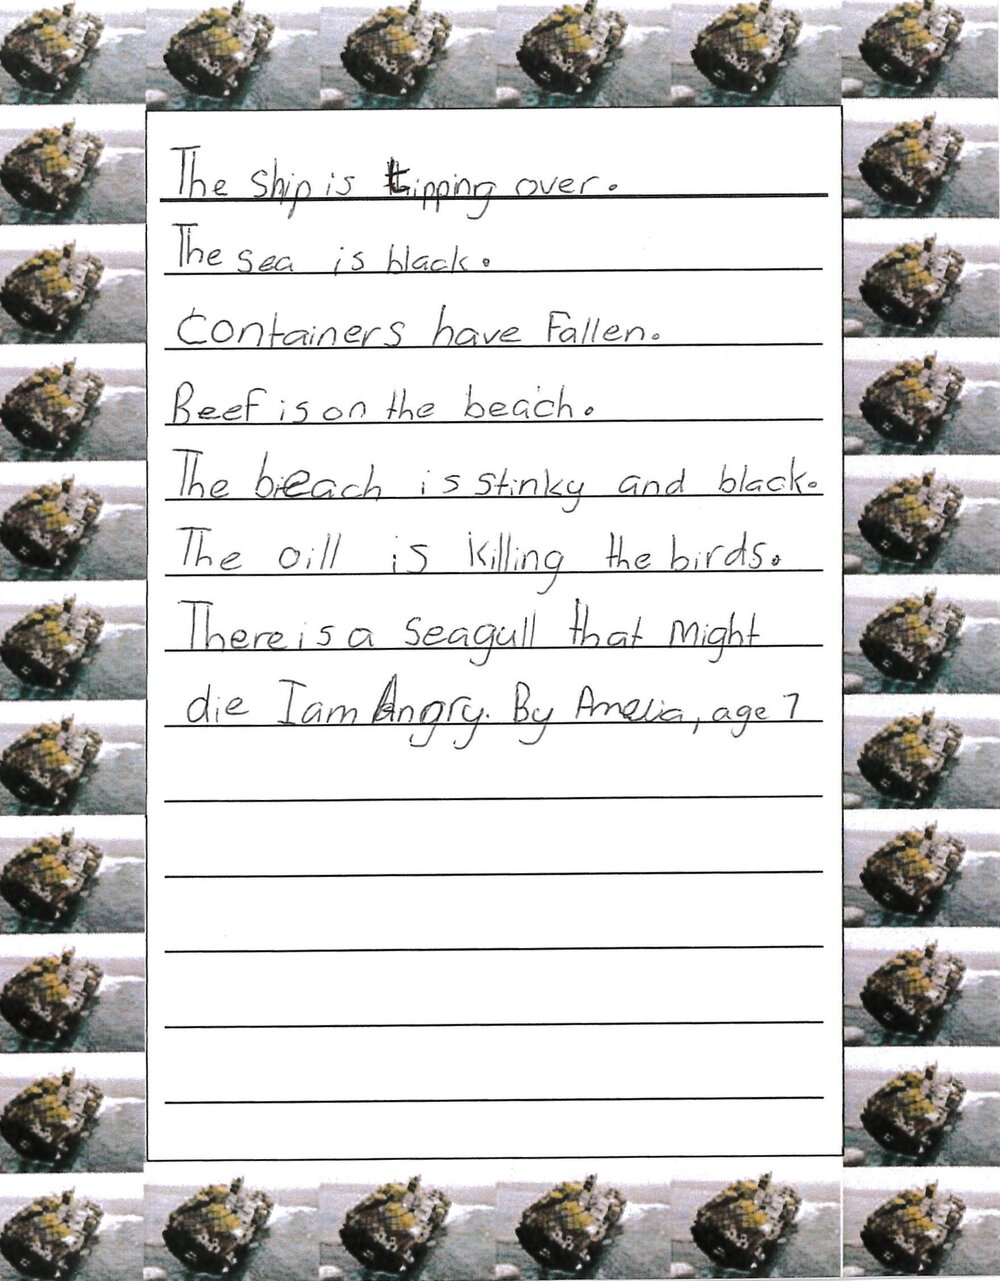 The ship is tipping over.
The sea is black.
Containers have Fallen.
Beef is on the beach.
The beach is stinky and black.
The oill is killing the birds.
There is a seagull that might
die I am Angry. By Amelia, age 7